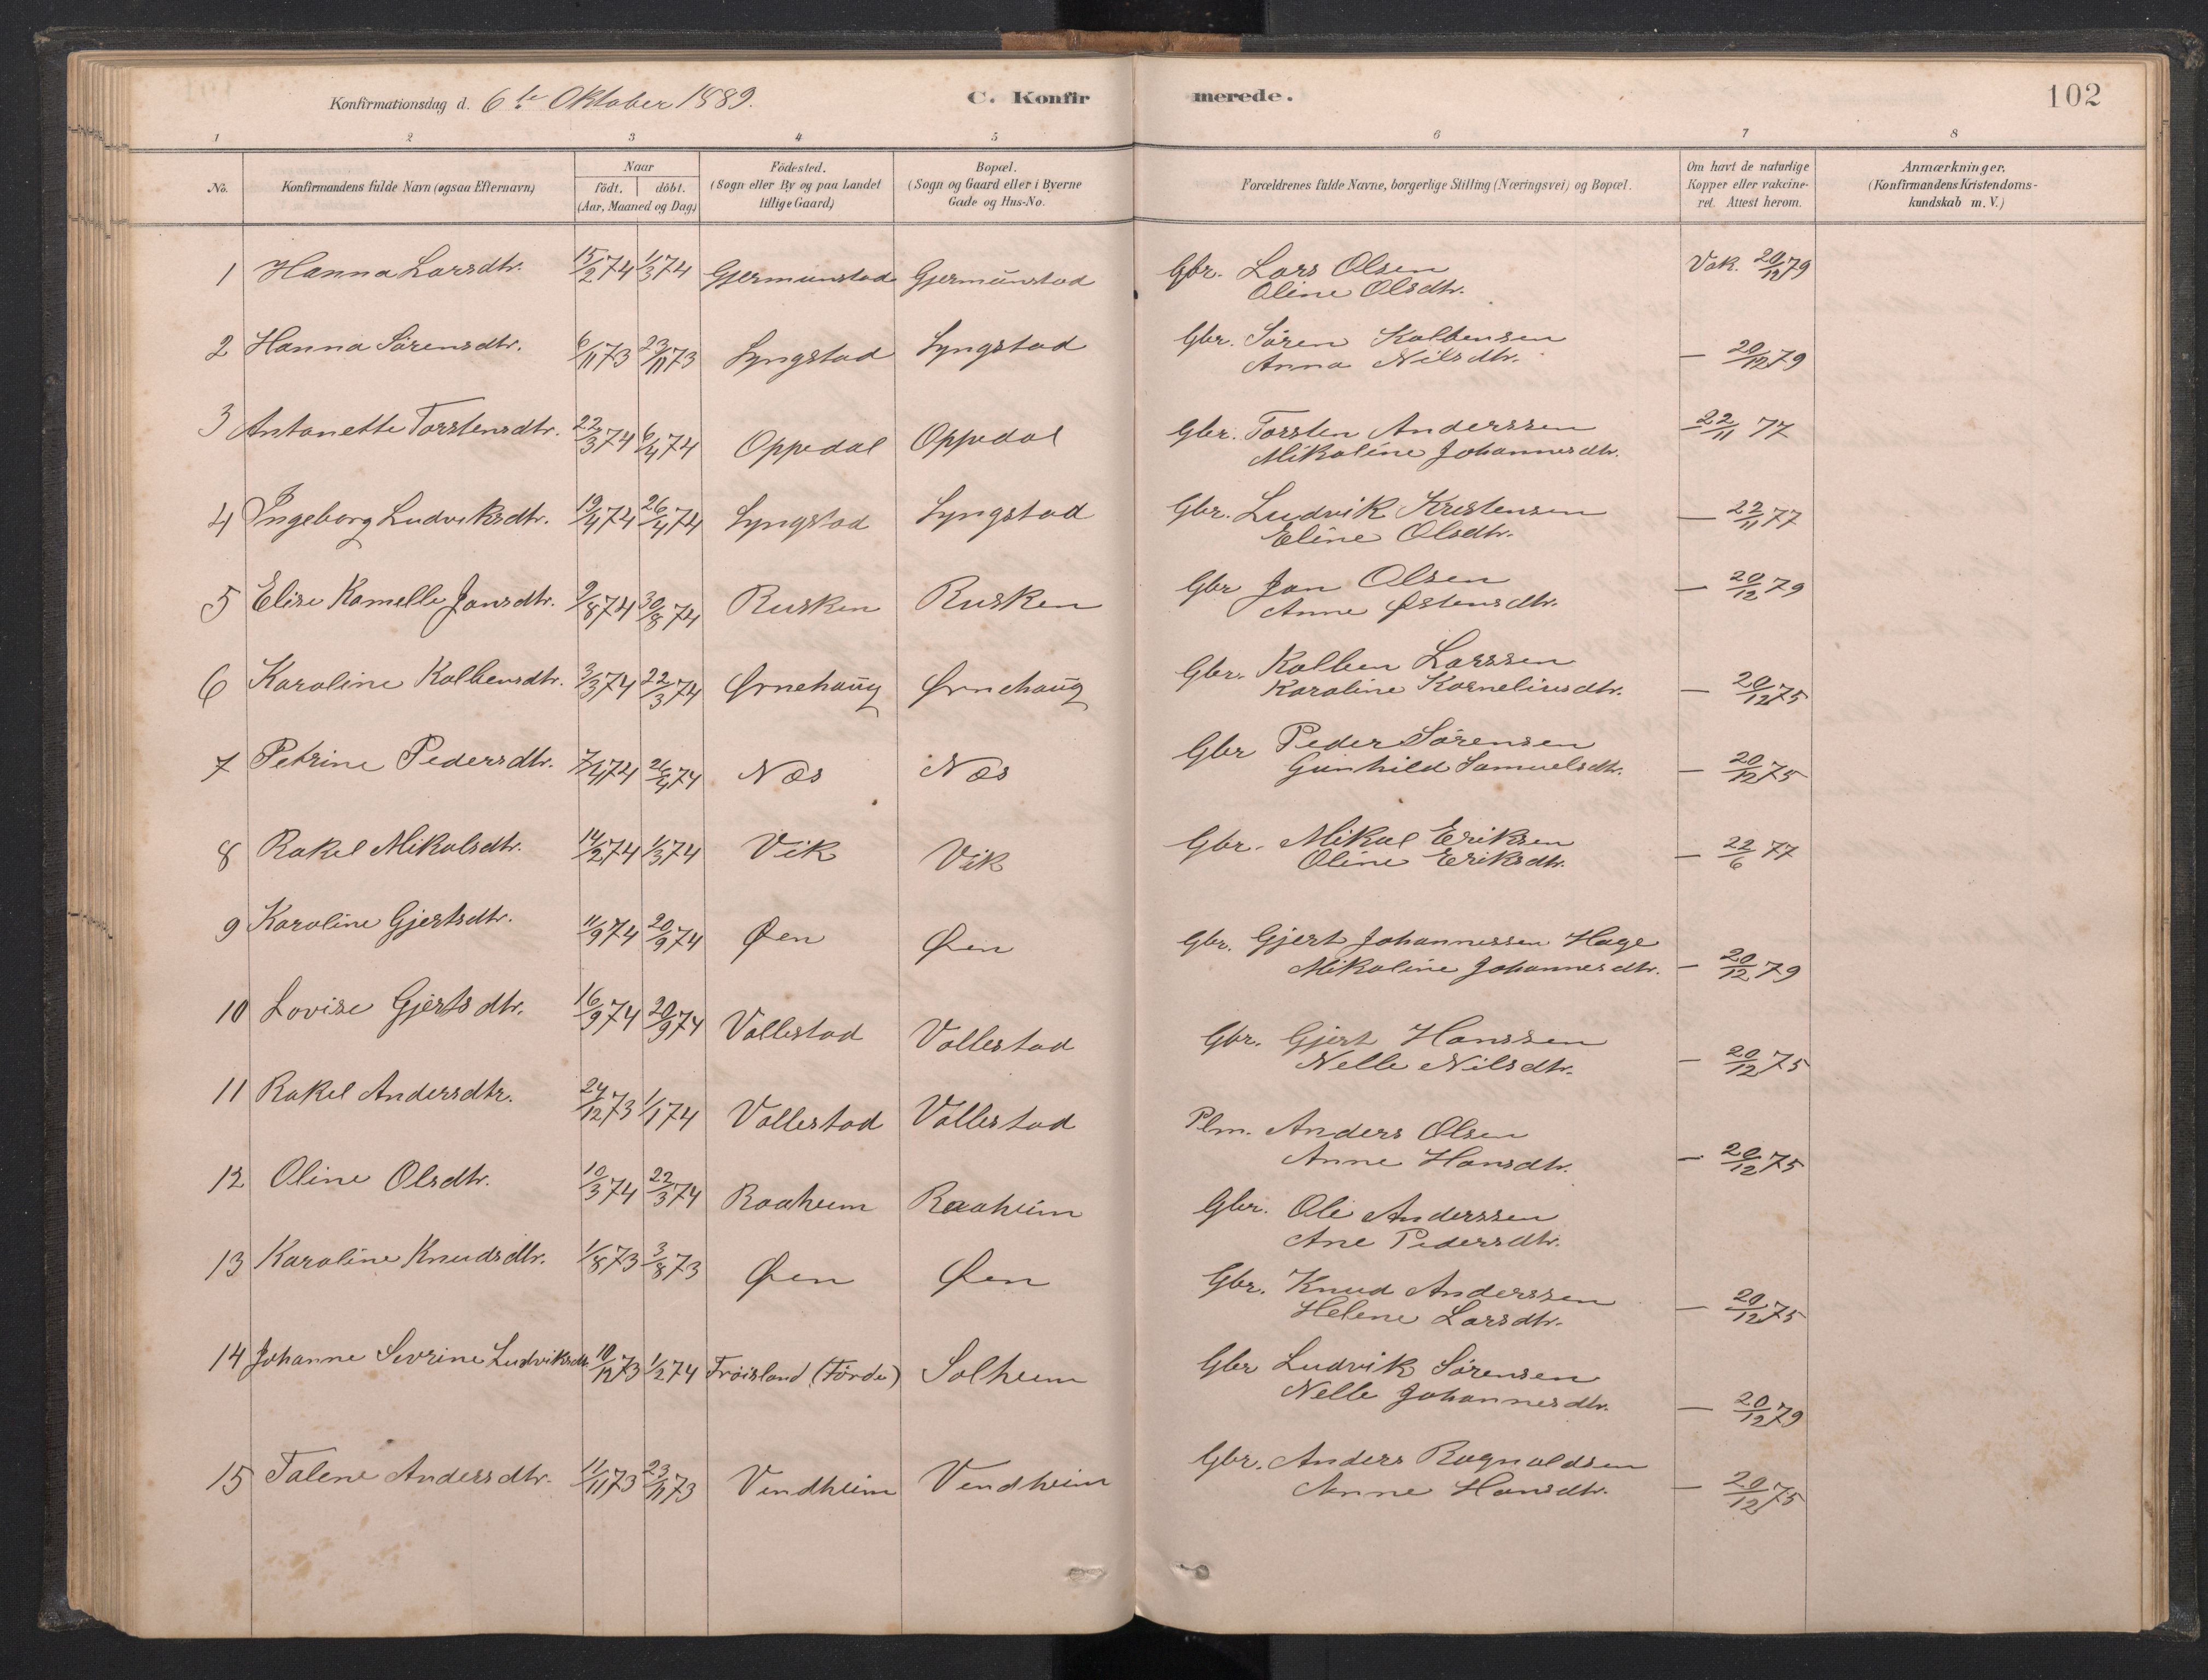 Konfirmationsdag d. 6te Oktober 1889. C. Konfirmerede. 102
1 2 3 4 5 6 7 8
No. Konfirmandens fulde Navn (ogsaa Efternavn) Naar födt. döbt. (Aar, Maaned og Dag.) Födested. (Sogn eller By og paa Landet tillige Gaard) Bopæl. (Sogn og Gaard eller i Byerne Gade og Hus-No. Forældrenes fulde Navne, borgerlige Stilling (Næringsvei) og Bopæl. Om havt de naturlige Kopper eller vakcineret. Attest herom. Anmærkninger. (Konfirmandens Kristendomskundskab m. V.)
1 Hanna Larsdtr. 15/2 74 1/3 74 Gjermunstad Gjermunstad Gbr. Lars Olsen Vak. 20/12 79
Oline Olsdtr.
2 Hanna Sörensdtr. 6/11 73 23/11 73 Lyngstad Lyngstad Gbr. Sören Kolbensen
Anna Nilsdtr. — 20/12 79
3 Antonette Torstensdtr. 22/3 74 6/4 74 Oppedal Oppedal Gbr. Torsten Anderssen — 22/11 77
Mikaline Johannesdtr.
4 Ingeborg Ludviksdtr. 19/4 74 26/4 74 Lyngstad Lyngstad Gbr. Ludvik Kristensen — 22/11 77
Eline Olsdtr.
5 Elise Kamelle Jansdtr. 9/8 74 30/8 74 Rusken Rusken Gbr Jan Olsen — 20/12 79
Anne Østensdtr.
6 Karoline Kolbensdtr. 3/3 74 22/3 74 Ørnehaug Ørnehaug Gbr. Kolben Larssen
Karoline Korneliusdtr. — 20/12 75
7 Petrine Pedersdtr. 7/4 74 26/4 74 Næs Næs Gbr Peder Sörensen
Gunhild Samuelsdtr. — 20/12 75
8 Rakel Mikalsdtr. 14/2 74 1/3 74 Vik Vik Gbr. Mikal Eriksen
Oline Eriksdtr. — 22/6 77
9 Karoline Gjertsdtr. 11/9 74 20/9 74 Øen Øen Gbr. Gjert Johannessen Hage
Mikaline Johannesdtr. — 20/12 79
10 Lovise Gjertsdtr. 16/9 74 20/9 74 Vallestad Vallestad Gbr. Gjert Hanssen
Nelle Nilsdtr. — 20/12 75
11 Rakel Andersdtr. 24/12 73 1/1 74 Vallestad Vallestad Plm. Anders Olsen
Anne Hansdtr. — 20/12 75
12 Oline Olsdtr. 10/3 74 22/3 74 Raaheim Raaheim Gbr. Ole Anderssen
Ane Pedersdtr.
13 Karoline Knudsdtr. 1/8 73 3/8 73 Øen Øen Gbr. Knud Anderssen
Helene Larsdtr. — 20/12 75
14 Johanne Sevrine Ludviksdtr 10/12 73 1/2 74 Fröisland (Förde) Solheim Gbr Ludvik Sörensen
Nelle Johannesdtr. — 20/12 79
15 Talene Andersdtr. 11/11 73 23/11 73 Vendheim Vendheim Gbr. Anders Ragnaldsen
Anne Hansdtr. — 20/12 75